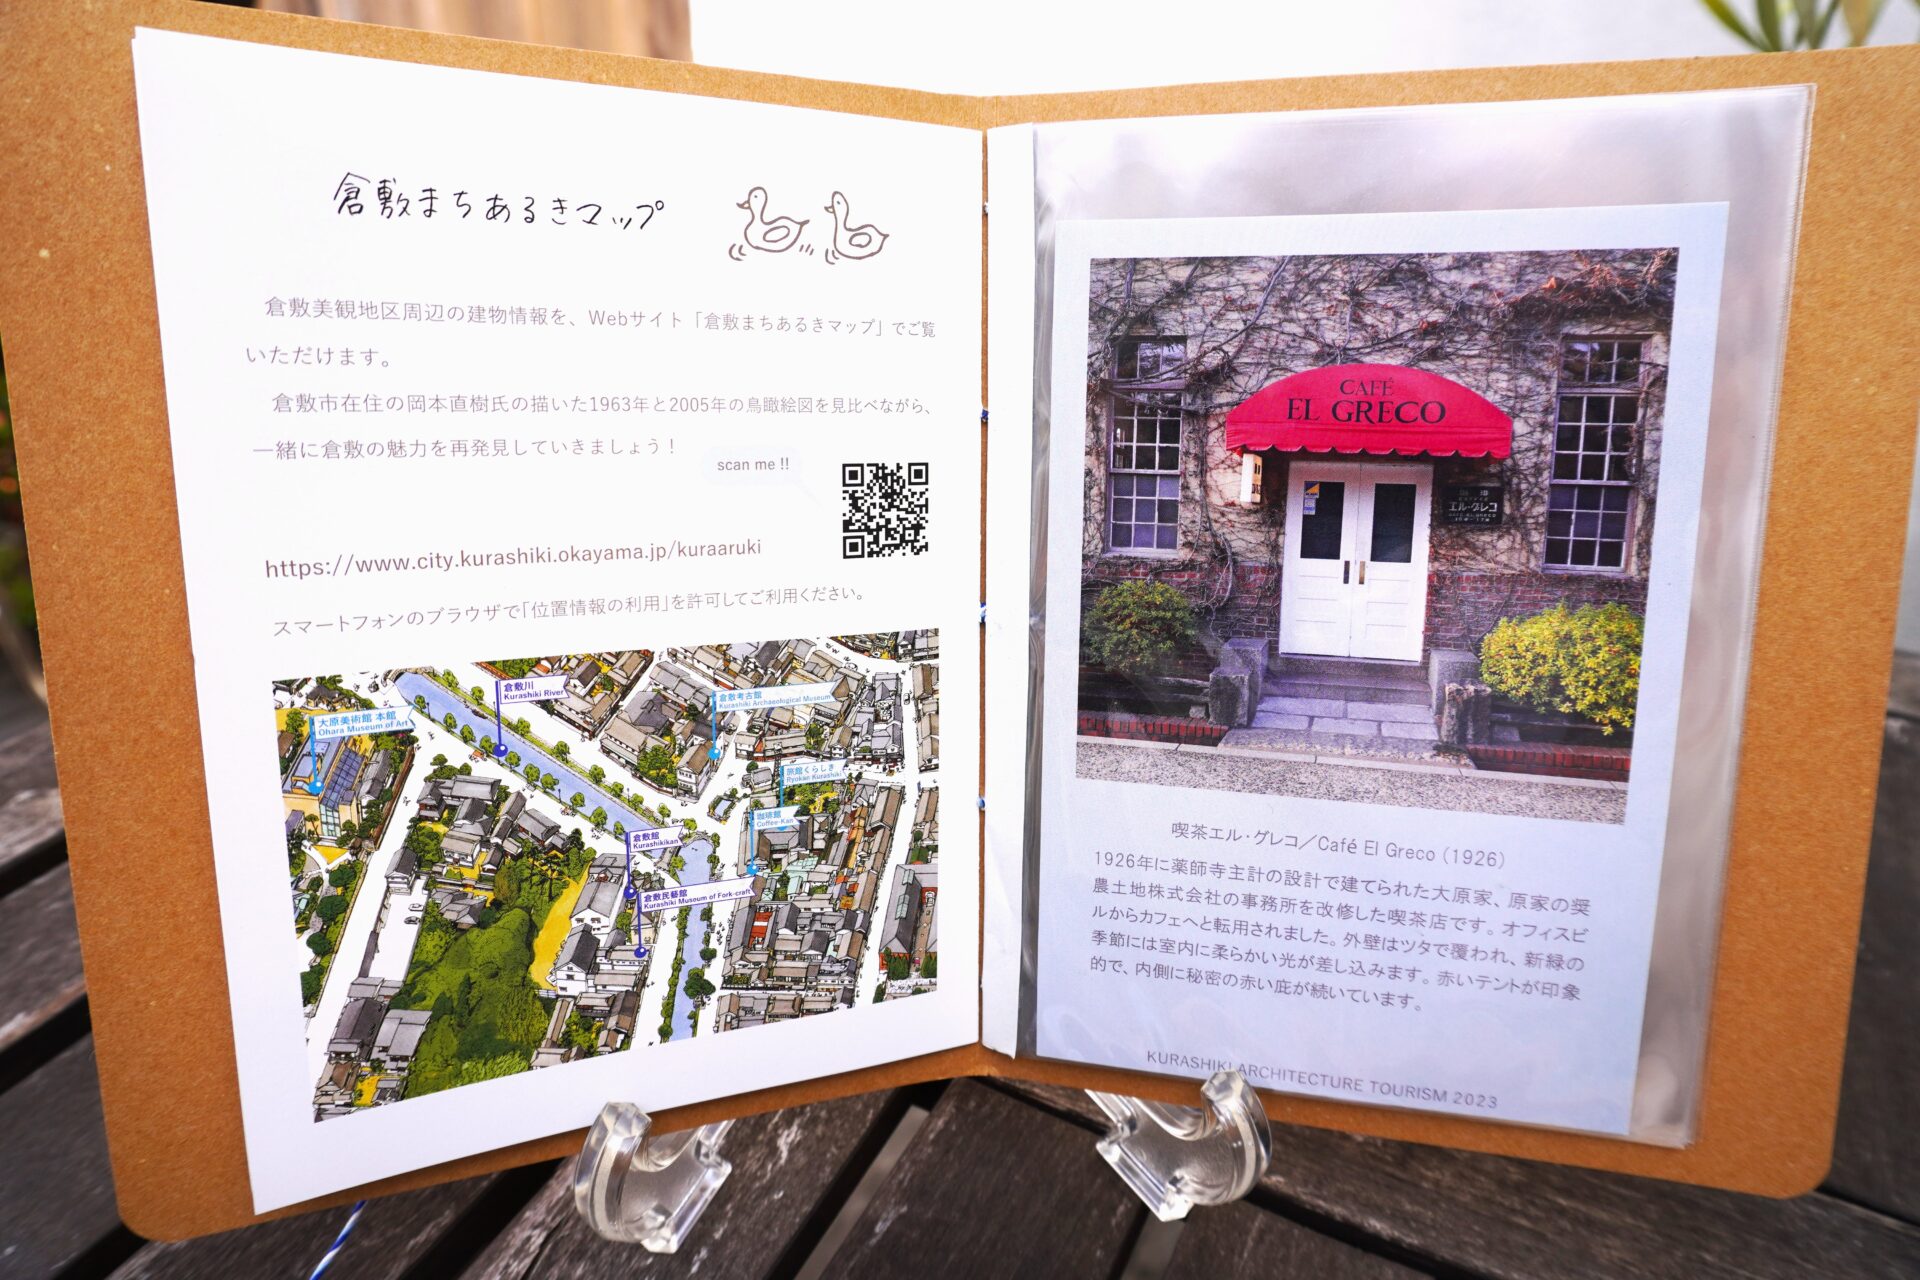 倉敷まちあるきマップ
倉敷美観地区周辺の建物情報を、Webサイト「倉敷まちあるきマップ」でご覧
いただけます。
倉敷市在住の岡本直樹氏の描いた1963年と2005年の鳥瞰絵図を見比べながら、
一緒に倉敷の魅力を再発見していきましょう！
scan me !!
https://www.city.kurashiki.okayama.jp/kuraaruki
スマートフォンのブラウザで「位置情報の利用」を許可してご利用ください。
倉敷川
Kurashiki River
倉敷考古館
Kurashiki Archaeological Museum
大原美術館 本館
Ohara Museum of Art
旅館くらしき
Ryokan Kurashiki
珈琲館
Coffee-Kan
倉敷館
Kurashikikan
倉敷民藝館
Kurashiki Museum of Fork-craft
CAFÉ
EL GRECO
エル・グレコ
喫茶エル・グレコ／Café El Greco (1926)
1926年に薬師寺主計の設計で建てられた大原家、原家の奨
農土地株式会社の事務所を改修した喫茶店です。オフィスビ
ルからカフェへと転用されました。外壁はツタで覆われ、新緑の
季節には室内に柔らかい光が差し込みます。赤いテントが印象
的で、内側に秘密の赤い庇が続いています。
KURASHIKI ARCHITECTURE TOURISM 2023